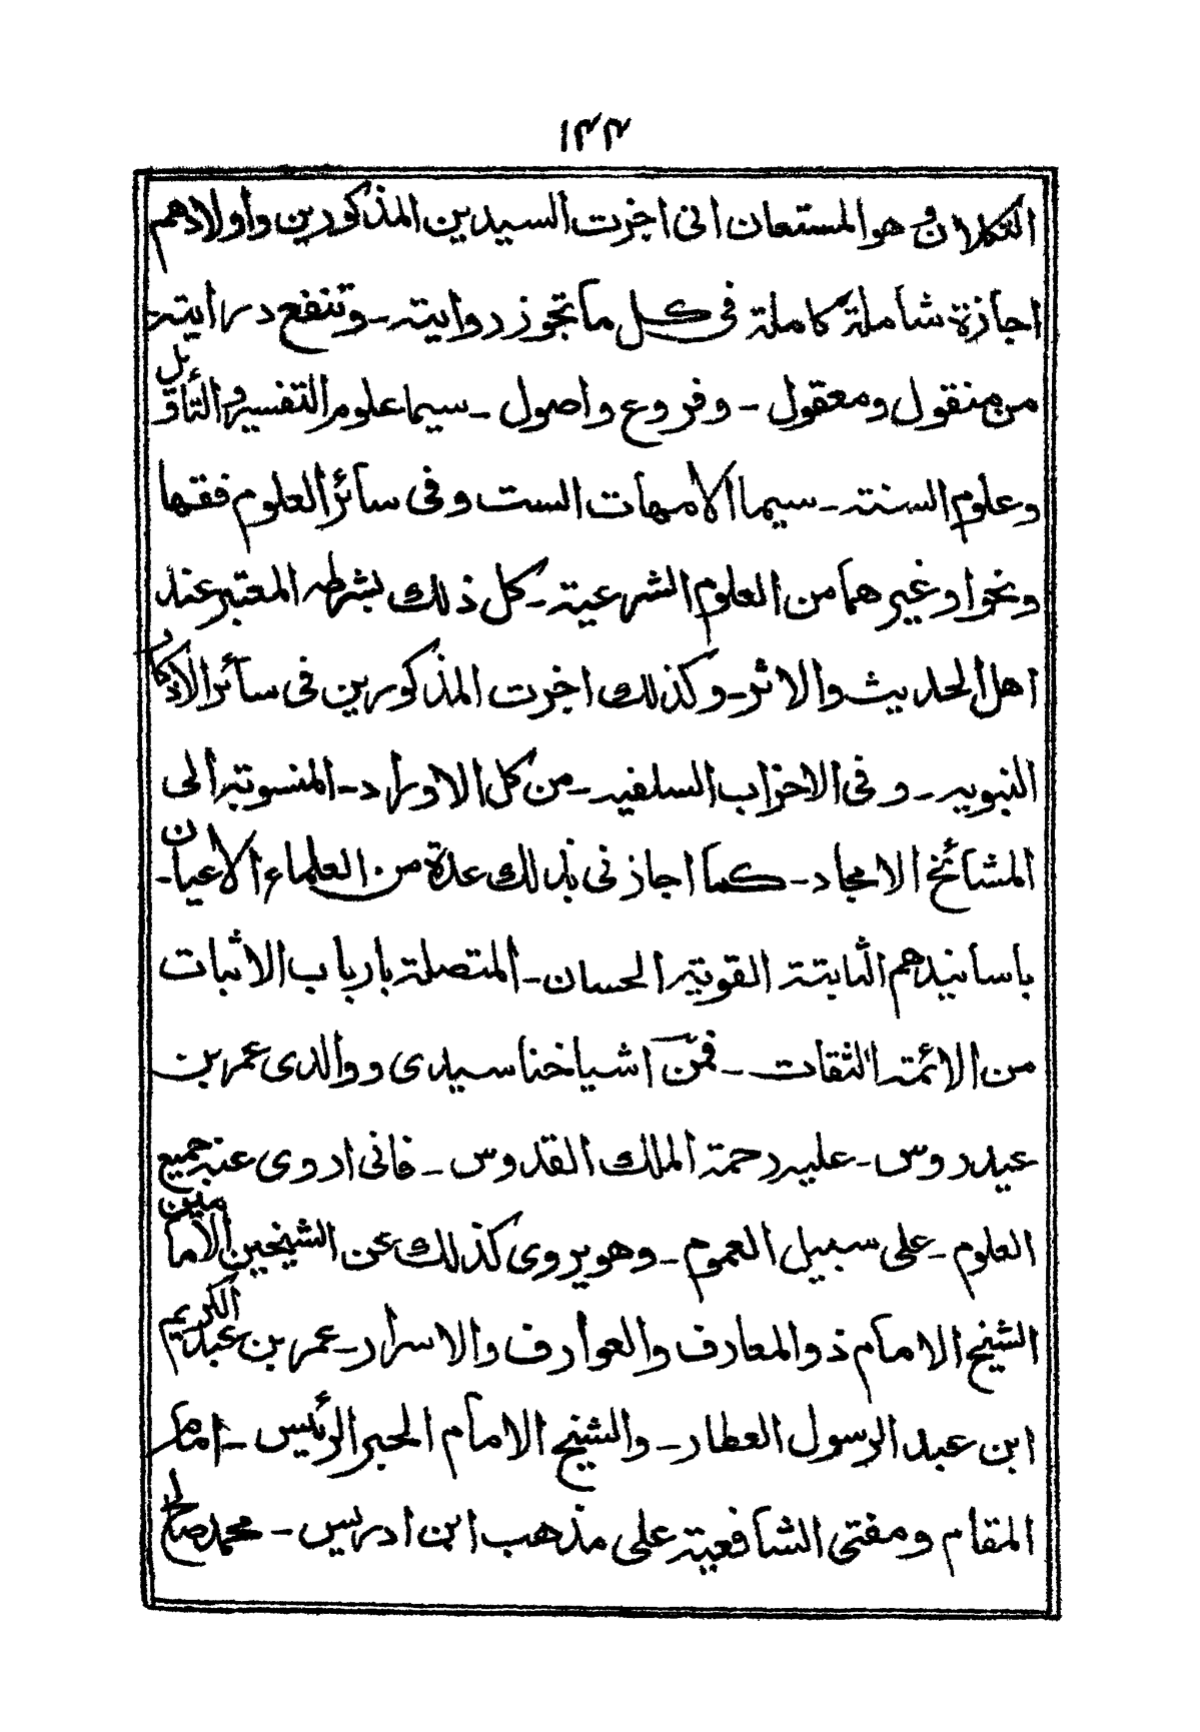 ١٣٣
التكلان وهو المستعان انى اجزت السيدين المذكورين وأولادهم
اجازة شاملة كاملة فى كل ما تجوز روايته - وتنفع درايته
من منقول ومعقول - وفروع واصول - سيما علوم التفسير والتأويل
وعلوم السنة - سيما الامهات الست وفى سائر العلوم فقها
ونحوا وغيرهما من العلوم الشرعية - كل ذلك بشرطه المعتبر عند
اهل الحديث والاثر - وكذلك اجزت المذكورين فى سائر الاذكار
النبويه - وفى الاحزاب السلفيه - من كل الاوراد - المنسوبة الى
المشائخ الامجاد - كما اجازنى بذلك عدة من العلماء الاعيان -
باسانيدهم الثابتة القوية الحسان - المتصلة بارباب الاثبات
من الائمة الثقات - فمن اشياخنا سيدى ووالدى عمر بن
عيدروس - عليه رحمة الملك القدوس - فانى اروى عنه جميع
العلوم - على سبيل العموم - وهو يروى كذلك عن الشيخين الامامين
الشيخ الامام ذو المعارف والعوارف والاسرار - عمر بن عبد الكريم
ابن عبد الرسول العطار - والشيخ الامام الحبر الرئيس - امام
المقام ومفتى الشافعية على مذهب ابن ادريس - محمد صالح